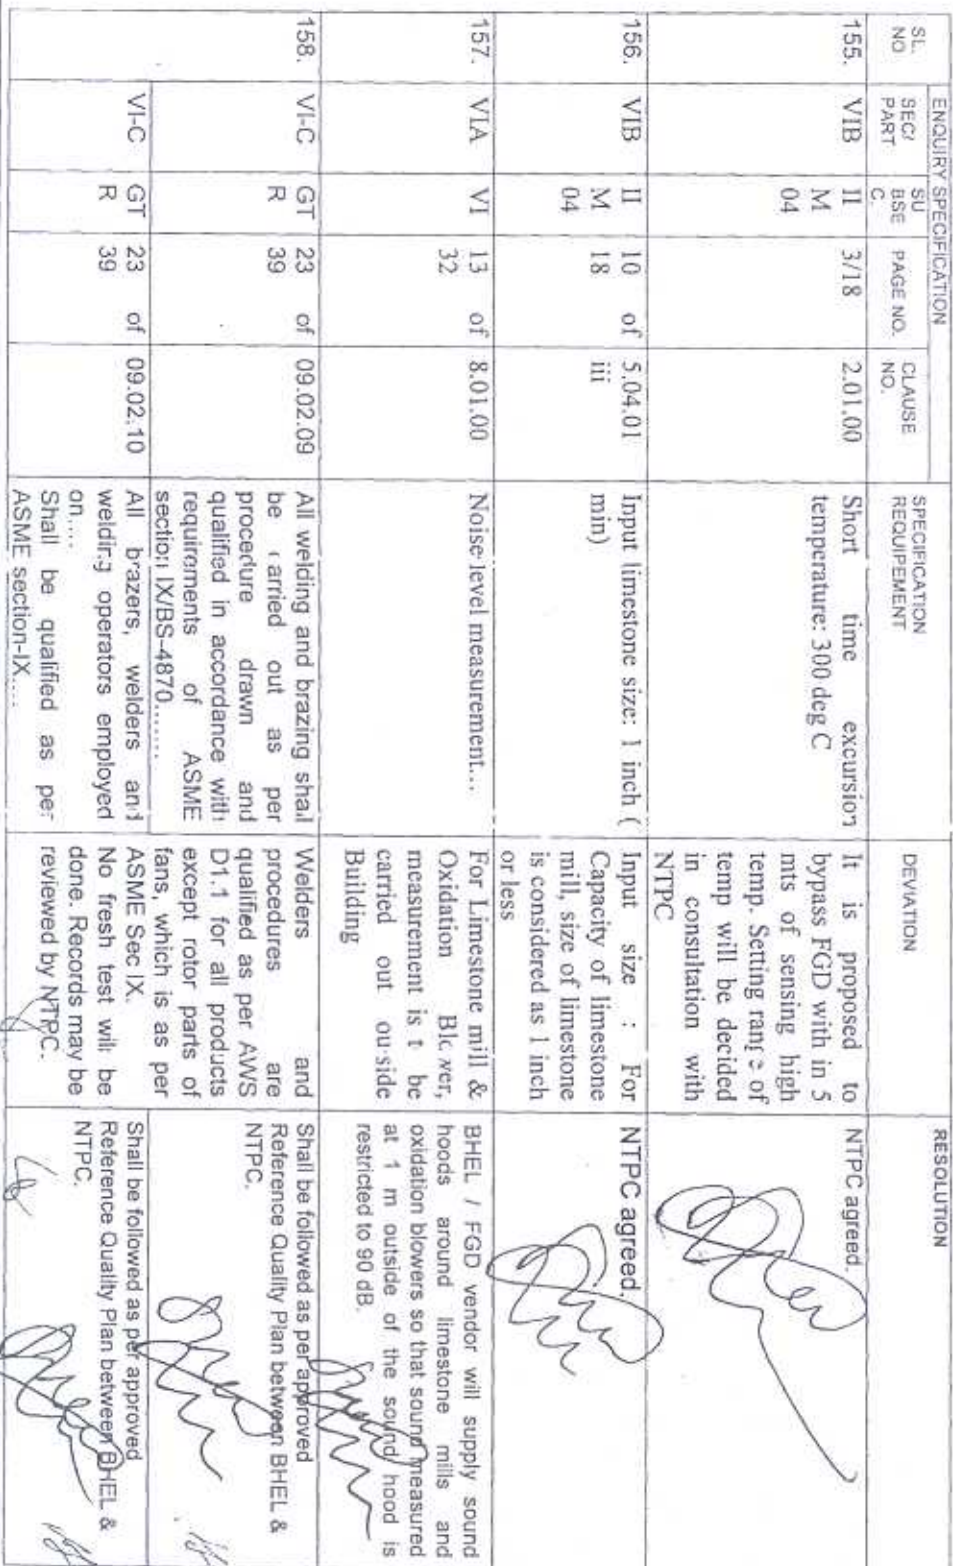 ENQUIRY SPECIFICATION
SL. NO
SEC/ PART
SU BSE C
PAGE NO.
CLAUSE NO.
SPECIFICATION REQUIPEMENT
DEVIATION
RESOLUTION
155.
VIB
II
M
04
3/18
2.01.00
Short time excursion
temperature: 300 deg C
It is proposed to
bypass FGD with in 5
mts of sensing high
temp. Setting range of
temp will be decided
in consultation with
NTPC
NTPC agreed.
156.
VIB
II
M
04
10 of
18
5.04.01
iii
Input limestone size: 1 inch (
min)
Input size : For
Capacity of limestone
mill, size of limestone
is considered as 1 inch
or less
NTPC agreed.
157.
VIA
VI
13 of
32
8.01.00
Noise level measurement...
For Limestone mill &
Oxidation Blower,
measurement is to be
carried out outside
Building
BHEL / FGD vendor will supply sound
hoods around limestone mills and
oxidation blowers so that sound measured
at 1 m outside of the sound hood is
restricted to 90 dB.
158.
VI-C
GT
R
23 of
39
09.02.09
All welding and brazing shall
be carried out as per
procedure drawn and
qualified in accordance with
requirements of ASME
section IX/BS-4870......
Welders and
procedures are
qualified as per AWS
D1.1 for all products
except rotor parts of
fans, which is as per
ASME Sec IX.
No fresh test will be
done. Records may be
reviewed by NTPC.
Shall be followed as per approved
Reference Quality Plan between BHEL &
NTPC.
VI-C
GT
R
23 of
39
09.02.10
All brazers, welders and
welding operators employed
on....
Shall be qualified as per
ASME section-IX....
Shall be followed as per approved
Reference Quality Plan between BHEL &
NTPC.